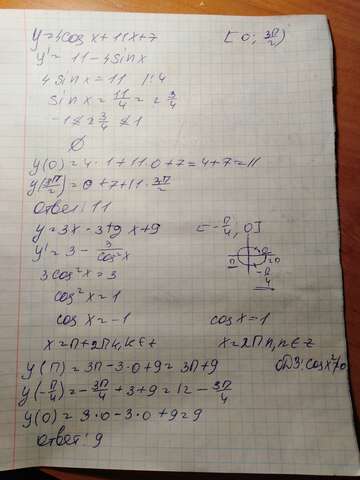 y=4cos x+11x+7 [0; 3π/2)
y'= 11-4sinx
4sinx=11 |:4
sinx=11/4=2 3/4
-1≰2 3/4≰1
∅
y(0)=4·1+11·0+7=4+7=11
y(3π/2)=0+7+11·3π/2
Ответ: 11
y=3x-3tg x+9 [-π/4; 0]
y'=3-3/cos²x
3cos²x=3
cos²x=1
cos x=-1 cos x=1
x=π+2πk, k∈z x=2πn, n∈z
y(π)=3π-3·0+9=3π+9 ОДЗ: cosx²≠0
y(-π/4)=-3π/4+3+9=12-3π/4
y(0)=3·0-3·0+9=9
Ответ: 9